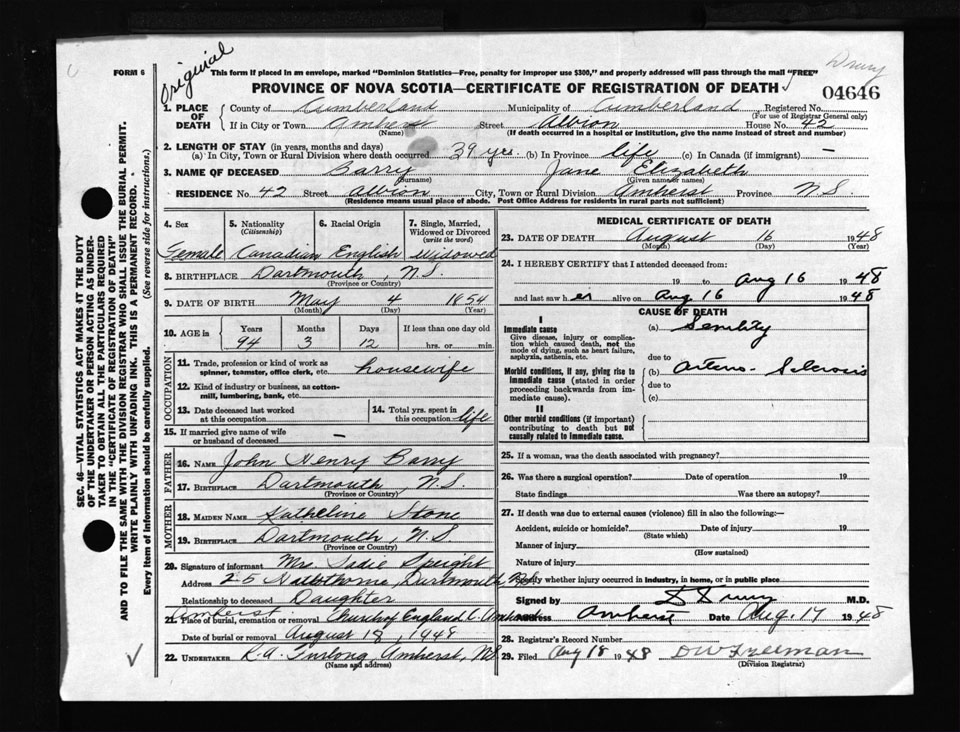 Original
Drury
FORM 6
This form if placed in an envelope, marked "Dominion Statistics—Free, penalty for improper use $300," and properly addressed will pass through the mail "FREE"
PROVINCE OF NOVA SCOTIA—CERTIFICATE OF REGISTRATION OF DEATH
04646
1. PLACE OF DEATH
County of Cumberland Municipality of Cumberland Registered No.
(For use of Registrar General only)
If in City or Town Amherst Street Albion House No. 42
(Name) (If death occurred in a hospital or institution, give the name instead of street and number)
2. LENGTH OF STAY (in years, months and days)
(a) In City, Town or Rural Division where death occurred 39 yrs. (b) In Province life (c) In Canada (if immigrant) —
3. NAME OF DECEASED Barry Jane Elizabeth
(Surname) (Given name or names)
RESIDENCE No. 42 Street Albion City, Town or Rural Division Amherst Province N.S.
(Residence means usual place of abode. Post Office Address for residents in rural parts not sufficient)
4. Sex 5. Nationality (Citizenship) 6. Racial Origin 7. Single, Married, Widowed or Divorced (write the word)
Female Canadian English Widowed
8. BIRTHPLACE Dartmouth, N.S.
(Province or Country)
9. DATE OF BIRTH May 4 1854
(Month) (Day) (Year)
10. AGE in Years Months Days If less than one day old
94 3 12 hrs. or min.
OCCUPATION
11. Trade, profession or kind of work as spinner, teamster, office clerk, etc. housewife
12. Kind of industry or business, as cotton-mill, lumbering, bank, etc.
13. Date deceased last worked at this occupation 14. Total yrs. spent in this occupation life
15. If married give name of wife or husband of deceased —
FATHER
16. NAME John Henry Barry
17. BIRTHPLACE Dartmouth, N.S.
(Province or Country)
MOTHER
18. MAIDEN NAME Katheline Stone
19. BIRTHPLACE Dartmouth, N.S.
(Province or Country)
20. Signature of informant Mrs. Sadie Speight
Address 25 Dartmouth N.S.
Relationship to deceased Daughter
Amherst
21. Place of burial, cremation or removal Church of England C. Amherst
Date of burial or removal August 18, 1948
22. UNDERTAKER R.A. Furlong, Amherst, N.S.
(Name and address)
MEDICAL CERTIFICATE OF DEATH
23. DATE OF DEATH August 16 1948
(Month) (Day) (Year)
24. I HEREBY CERTIFY that I attended deceased from:
19 to Aug 16 1948
and last saw her alive on Aug 16 1948
CAUSE OF DEATH
I
Immediate cause
Give disease, injury or complication which caused death, not the mode of dying, such as heart failure, asphyxia, asthenia, etc.
(a) Senility
due to
Morbid conditions, if any, giving rise to immediate cause (stated in order proceeding backwards from immediate cause).
(b) Arterio-Sclerosis
due to
(c)
II
Other morbid conditions (if important) contributing to death but not causally related to immediate cause.
25. If a woman, was the death associated with pregnancy?
26. Was there a surgical operation? Date of operation 19
State findings Was there an autopsy?
27. If death was due to external causes (violence) fill in also the following:—
Accident, suicide or homicide? Date of injury 19
(State which)
Manner of injury
(How sustained)
Nature of injury
Specify whether injury occurred in industry, in home, or in public place
Signed by D Drury M.D.
Address Amherst Date Aug. 17 1948
28. Registrar's Record Number
29. Filed Aug 18 1948 DW Freeman
(Division Registrar)
SEC. 46—VITAL STATISTICS ACT MAKES IT THE DUTY OF THE UNDERTAKER OR PERSON ACTING AS UNDERTAKER TO OBTAIN ALL THE PARTICULARS REQUIRED IN THE "CERTIFICATE OF REGISTRATION OF DEATH" AND TO FILE THE SAME WITH THE DIVISION REGISTRAR WHO SHALL ISSUE THE BURIAL PERMIT.
WRITE PLAINLY WITH UNFADING INK. THIS IS A PERMANENT RECORD.
Every item of Information should be carefully supplied. (See reverse side for instructions.)